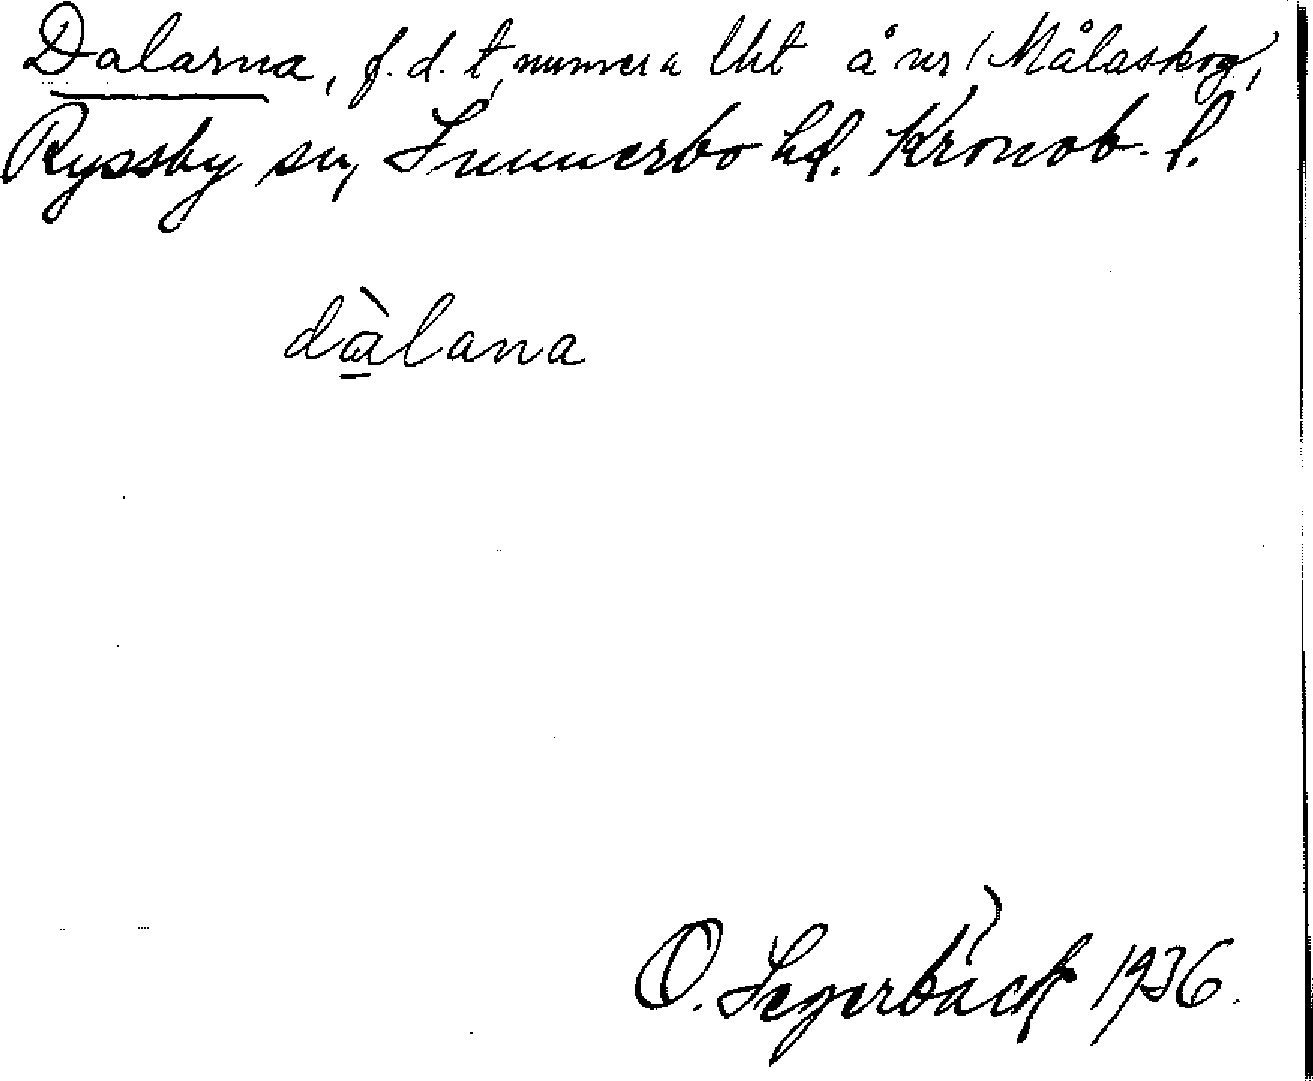 Dalarna, f. d. t, numera lht å nr 1 Målaskog,
Ryssby sn, Sunnerbo hd. Kronob. l.
dàlana
O. Segerbäck 1936.